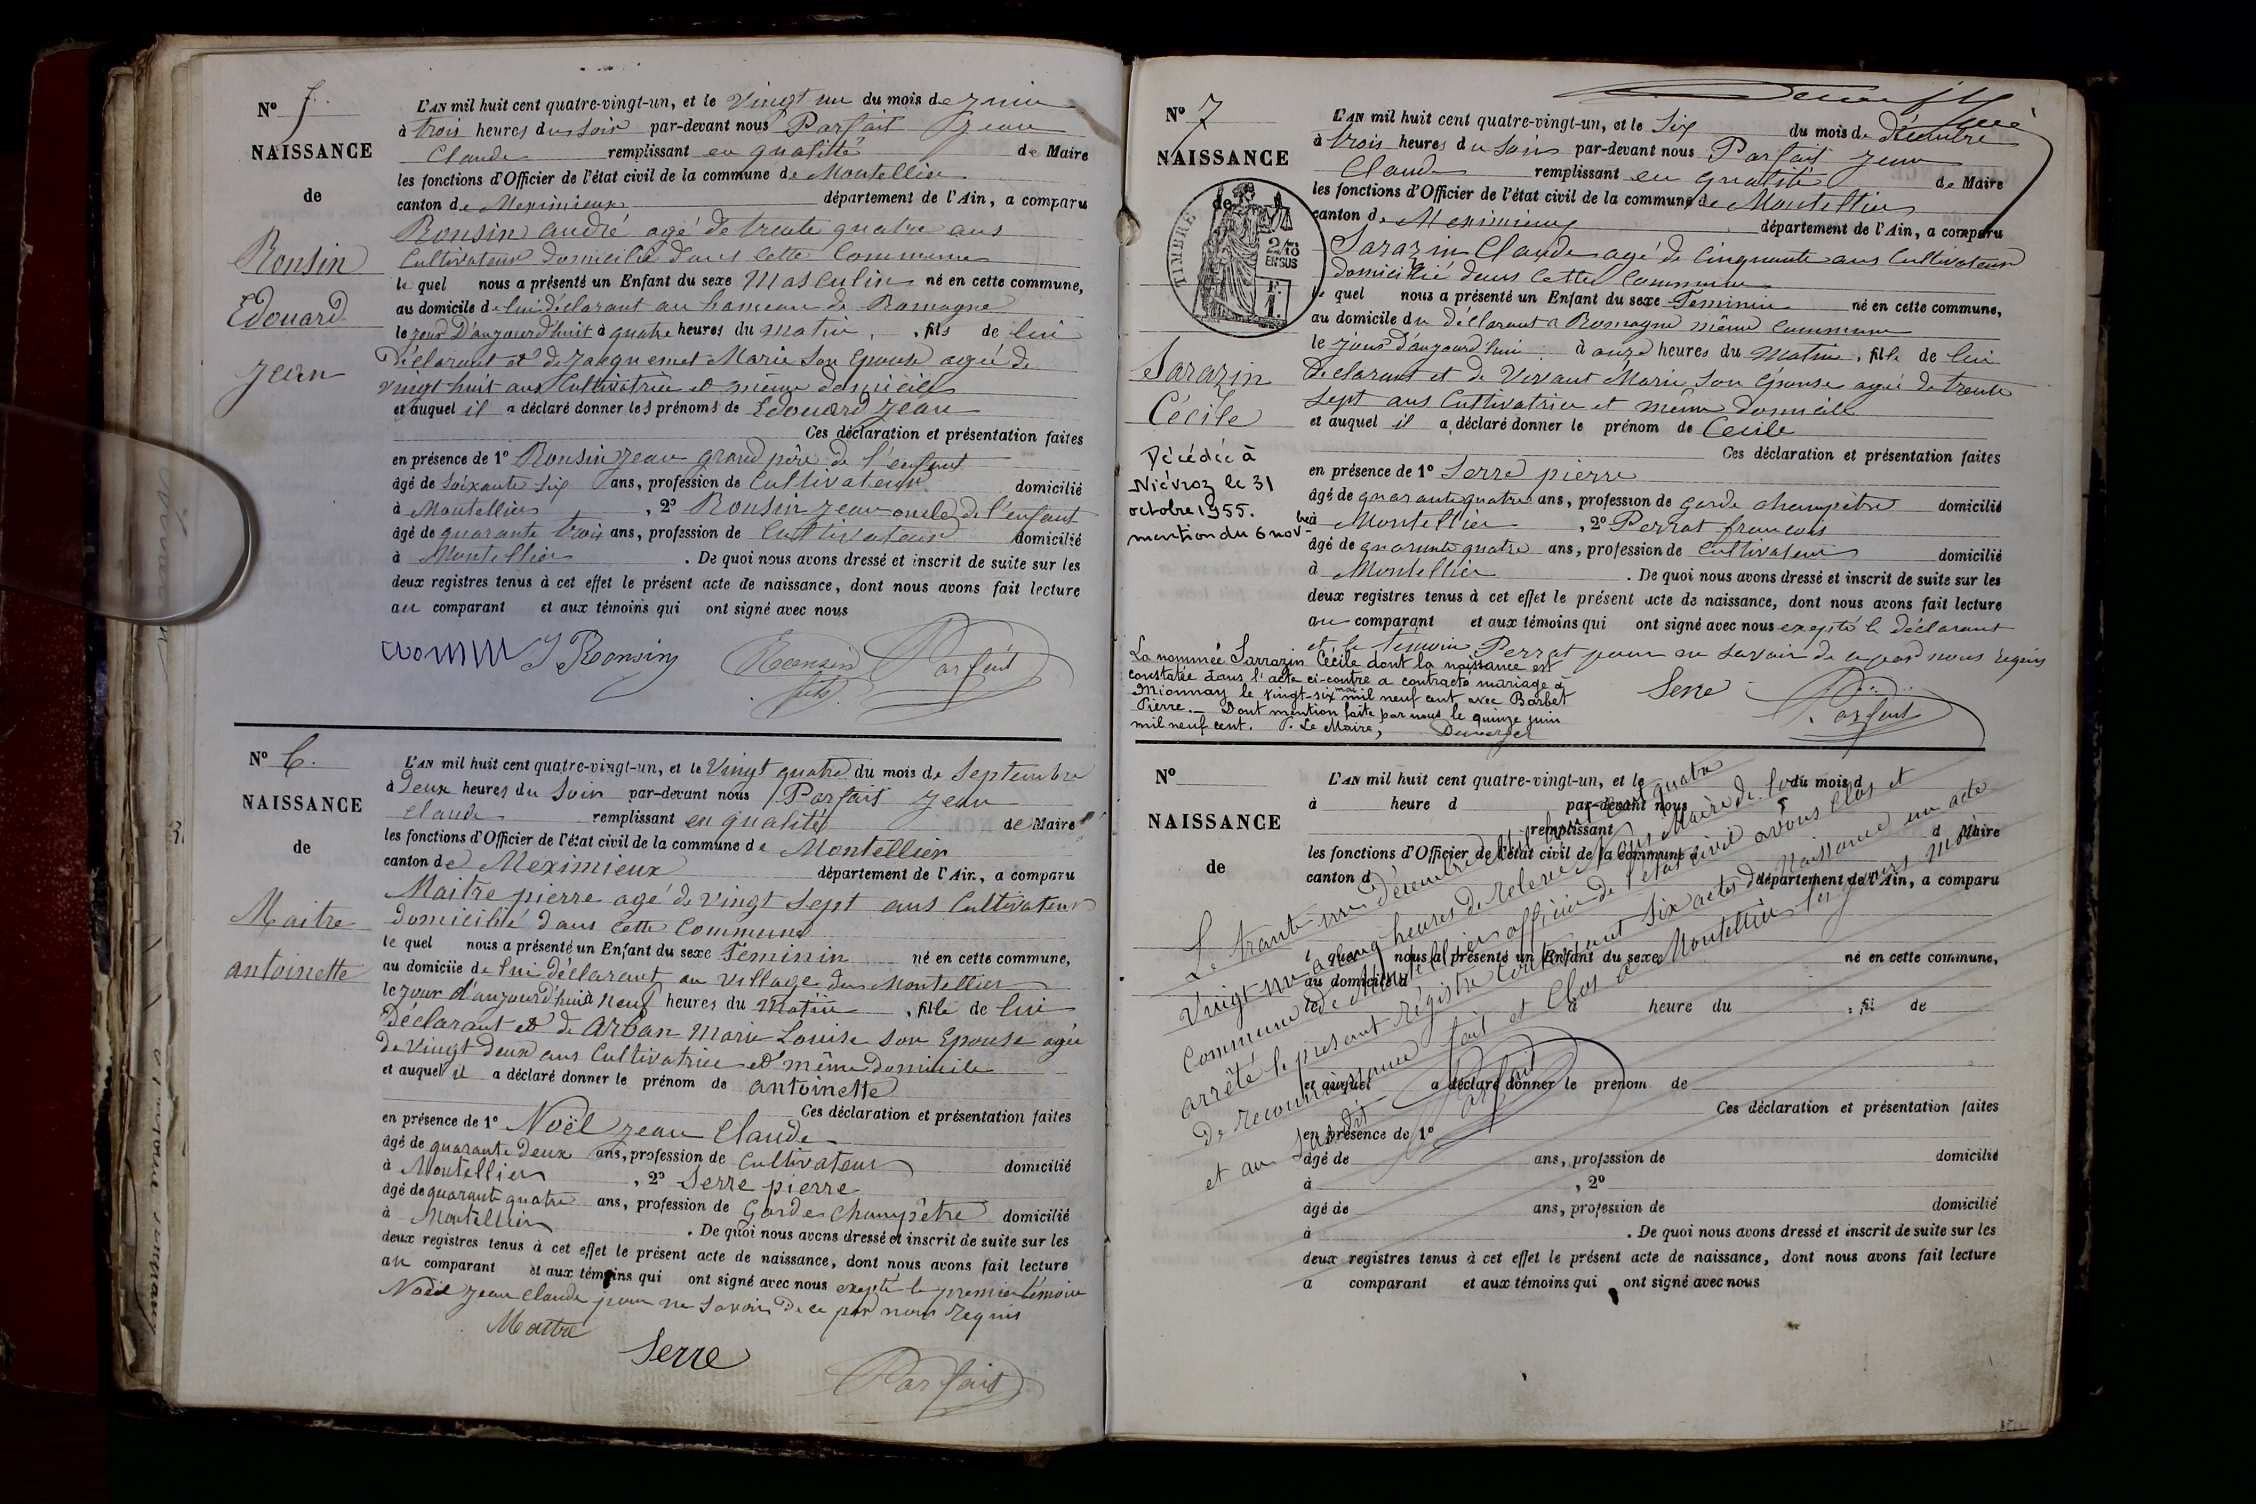 Nº 5.
NAISSANCE
de
Ronsin
Edouard
Jean
L'AN mil huit cent quatre-vingt-un, et le Vingt un du mois de juin
à trois heures du soir par-devant nous Parfait Jean
Claude remplissant en qualité de Maire
les fonctions d'Officier de l'état civil de la commune de Montellier
canton de Meximieux département de l'Ain, a comparu
Ronsin andré agé de trente quatre ans
Cultivateur domicilié dans cette Commune
le quel nous a présenté un Enfant du sexe Masculin né en cette commune,
au domicile de lui déclarant au hameau de Romagne
le jour D'aujourd'huit à quatre heures du matin, fils de lui
Déclarant et de Jacquemet Marie Son Epouse agée de
vingt huit ans Cultivatrice et même domicile
et auquel il a déclaré donner les prénoms de Edouard Jean
Ces déclaration et présentation faites
en présence de 1º Ronsin Jean grand père de l'enfant
âgé de soixante six ans, profession de Cultivateur domicilié
à Montellier, 2º Ronsin Jean oncle de l'enfant
âgé de quarante trois ans, profession de Cultivateur domicilié
à Montellier. De quoi nous avons dressé et inscrit de suite sur les
deux registres tenus à cet effet le présent acte de naissance, dont nous avons fait lecture
au comparant et aux témoins qui ont signé avec nous
J Ronsin Ronsin Parfait
fils
Nº 6.
NAISSANCE
de
Maitre
antoinette
L'AN mil huit cent quatre-vingt-un, et le Vingt quatre du mois de Septembre
à Deux heures du Soir par-devant nous Parfait Jean
Claude remplissant en qualité de Maire
les fonctions d'Officier de l'état civil de la commune de Montellier
canton de Meximieux département de l'Ain, a comparu
Maitre pierre agé de vingt Sept ans Cultivateur
domicilié dans cette Commune
le quel nous a présenté un Enfant du sexe Feminin né en cette commune,
au domicile de lui déclarant au Village du Montellier
le jour d'aujourd'hui à neuf heures du Matin, fille de lui
Déclarant et de Arban Marie Louise Son Epouse agée
De Vingt deux ans Cultivatrice et même domicile
et auquel il a déclaré donner le prénom de antoinette
Ces déclaration et présentation faites
en présence de 1º Noël Jean Claude
âgé de quarante Deux ans, profession de Cultivateur domicilié
à Montellier, 2º Serre pierre
âgé de quarante quatre ans, profession de Garde Champêtre domicilié
à Montellier. De quoi nous avons dressé et inscrit de suite sur les
deux registres tenus à cet effet le présent acte de naissance, dont nous avons fait lecture
au comparant et aux témoins qui ont signé avec nous excepté le premier témoin
Noël Jean Claude pour ne savoir De ce par nous requis
Maitre
Serre
Parfait
Nº 7
NAISSANCE
de
TIMBRE
2/10
EN SUS
Sarazin
Cécile
Décédée à
Niévroz le 31
octobre 1955.
mention du 6 nov bre
L'AN mil huit cent quatre-vingt-un, et le Six du mois de décembre
à trois heures du Soir par-devant nous Parfait Jean
Claude remplissant en qualité de Maire
les fonctions d'Officier de l'état civil de la commune de Montellier
canton de Meximieux département de l'Ain, a comparu
Sarazin Claude agé de Cinquante ans Cultivateur
domicilié dans Cette Commune
le quel nous a présenté un Enfant du sexe Feminin né en cette commune,
au domicile du Déclarant a Romagne même Commune
le jour d'aujourd'hui à onze heures du Matin, fille de lui
Declarant et de Vivant Marie Son Epouse agée de trente
Sept ans Cultivatrice et même domicile
et auquel il a déclaré donner le prénom de Cecile
Ces déclaration et présentation faites
en présence de 1º Serre pierre
âgé de quarante quatre ans, profession de garde champêtre domicilié
à Montellier, 2º Perrat francois
âgé de quarante quatre ans, profession de Cultivateur domicilié
à Montellier. De quoi nous avons dressé et inscrit de suite sur les
deux registres tenus à cet effet le présent acte de naissance, dont nous avons fait lecture
au comparant et aux témoins qui ont signé avec nous excepté le déclarant
et le témoin Perrat pour ne savoir de ce par nous requis
La nommée Sarrazin Cécile dont la naissance est
constatée dans l'acte ci-contre a contracté mariage à
Mionnay le vingt-six mai mil neuf cent avec Barbet
Pierre. — Dont mention faite par nous le quinze juin
mil neuf cent. P. Le Maire,
Serre Parfait
Nº
NAISSANCE
de
L'AN mil huit cent quatre-vingt-un, et le du mois d
à heure d par-devant nous
remplissant d Maire
les fonctions d'Officier de l'état civil de la commune d
canton d département de l'Ain, a comparu
quel nous a présenté un Enfant du sexe né en cette commune,
au domicile d
le à heure du , fil de
et auquel a déclaré donner le prénom de
Ces déclaration et présentation faites
en présence de 1º
âgé de ans, profession de domicilié
à , 2º
âgé de ans, profession de domicilié
à . De quoi nous avons dressé et inscrit de suite sur les
deux registres tenus à cet effet le présent acte de naissance, dont nous avons fait lecture
a comparant et aux témoins qui ont signé avec nous
Le trante un décembre mil huit cent quatre
Vingt un a cinq heures de relevé Nous Maire de la
Commune de Montellier officier de l'état civil avons Clos et
arrêté le present régistre Contenant Six actes de Naissance un acte
De reconnaissance fait et Clos a Montellier les jours mois
et an susdit
Parfait